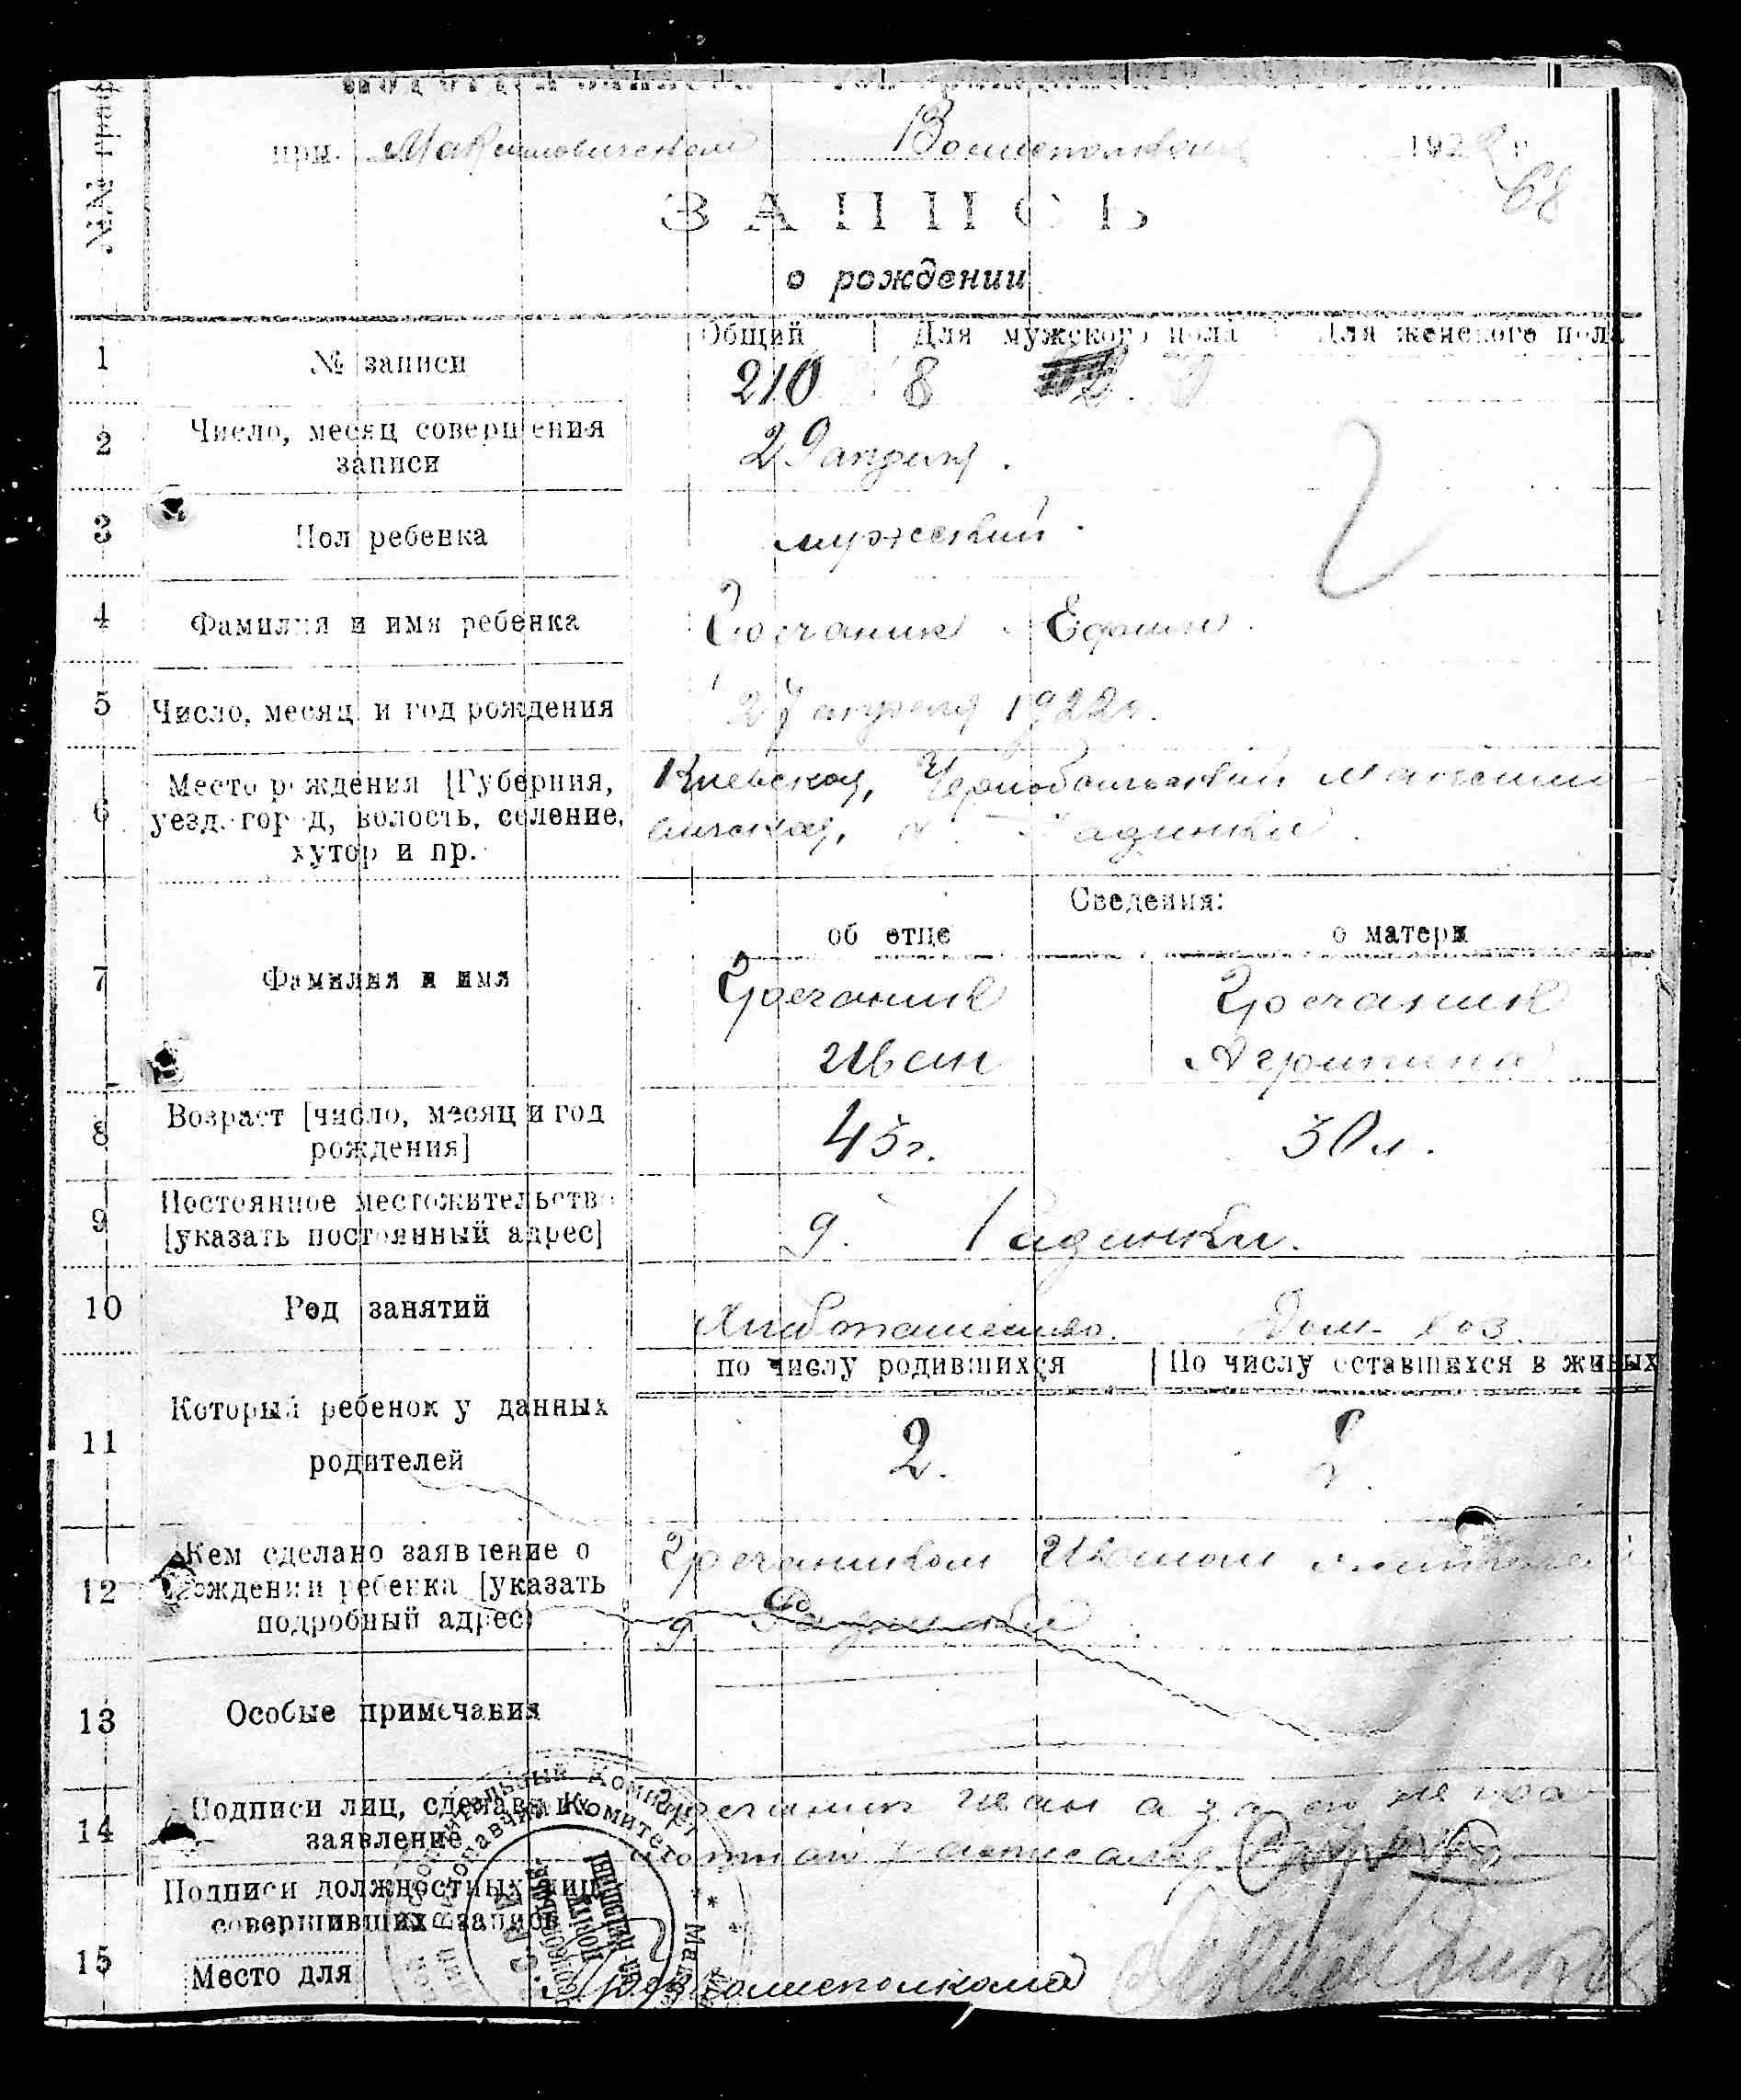 №№ граф
при Максимовическом Волисполкоме 1922 г.
68
ЗАПИСЬ
о рождении
Общий Для мужского пола Для женского пола
1 № записи 210 8
2 Число, месяц совершения
записи
29 апреля.
3 Пол ребенка мужский.
4 Фамилия и имя ребенка Гречаник Ефим.
5 Число, месяц и год рождения 27 апреля 1922 г.
6 Место рождения [Губерния,
уезд, город, волость, селение,
хутор и пр.
Киевская, Чернобыльский Максимо
вичская, д. Радинка.
Сведения:
об отце о матери
7 Фамилия и имя
Гречаник Гречаник
Иван Агрипина
8 Возраст [число, месяц и год
рождения]
45 г. 30 л.
9 Постоянное местожительство
[указать постоянный адрес]
д. Радинки.
10 Род занятий Хлибопашество. Дом. хоз.
по числу родившихся По числу оставшихся в живых
11 Который ребенок у данных
родителей
2. 2.
12 Кем сделано заявление о
рождении ребенка [указать
подробный адрес]
Гречаником Иваном жителей
д Радинки.
13 Особые примечания
14 Подписи лиц, сделавших
заявление
Гречаник Иван а за его негра
мотнаго росписался
15 Подписи должностных лиц
совершивших запись
Место для
Пред волисполкома